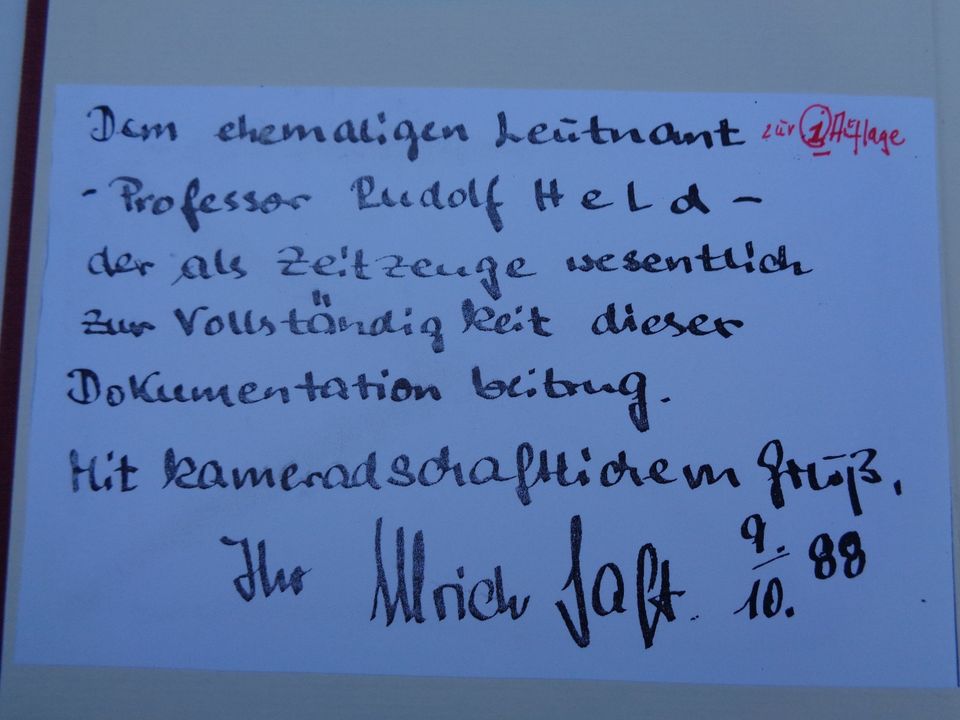 Dem ehemaligen Leutnant zur 1. Auflage
- Professor Rudolf Held -
der als Zeitzeuge wesentlich
zur Vollständigkeit dieser
Dokumentation beitrug.
Mit kameradschaftlichem Gruß,
Ihr Ulrich Saft. 9./10. 88